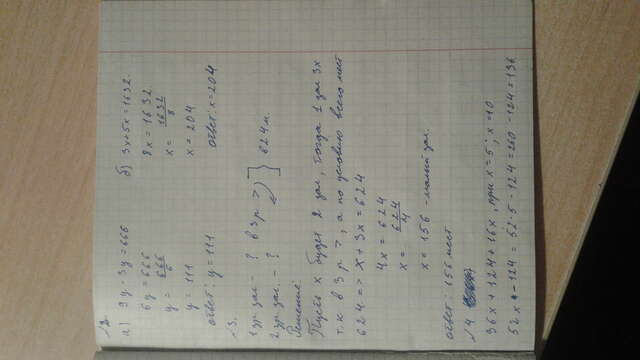 №2.
а) 9у - 3у = 666
6у = 666
у = 666/6
у = 111
ответ: у = 111
б) 3х+5х=1632
8х = 1632
х = 1632/8
х = 204
ответ: х = 204
№3.
1 зр. зал - ? в 3 р. >
2 зр. зал. - ?
624 м.
Решение:
Пусть х будет 2 зал, тогда 1 зал 3х
т.к в 3 р >, а по условию всего мест
624 => х + 3х = 624
4х = 624
х = 624/4
х = 156 - малый зал.
ответ: 155 мест
№4
36х + 124 + 16х, при х = 5; х = 10
52х - 124 = 52·5 - 124 = 260 - 124 = 136